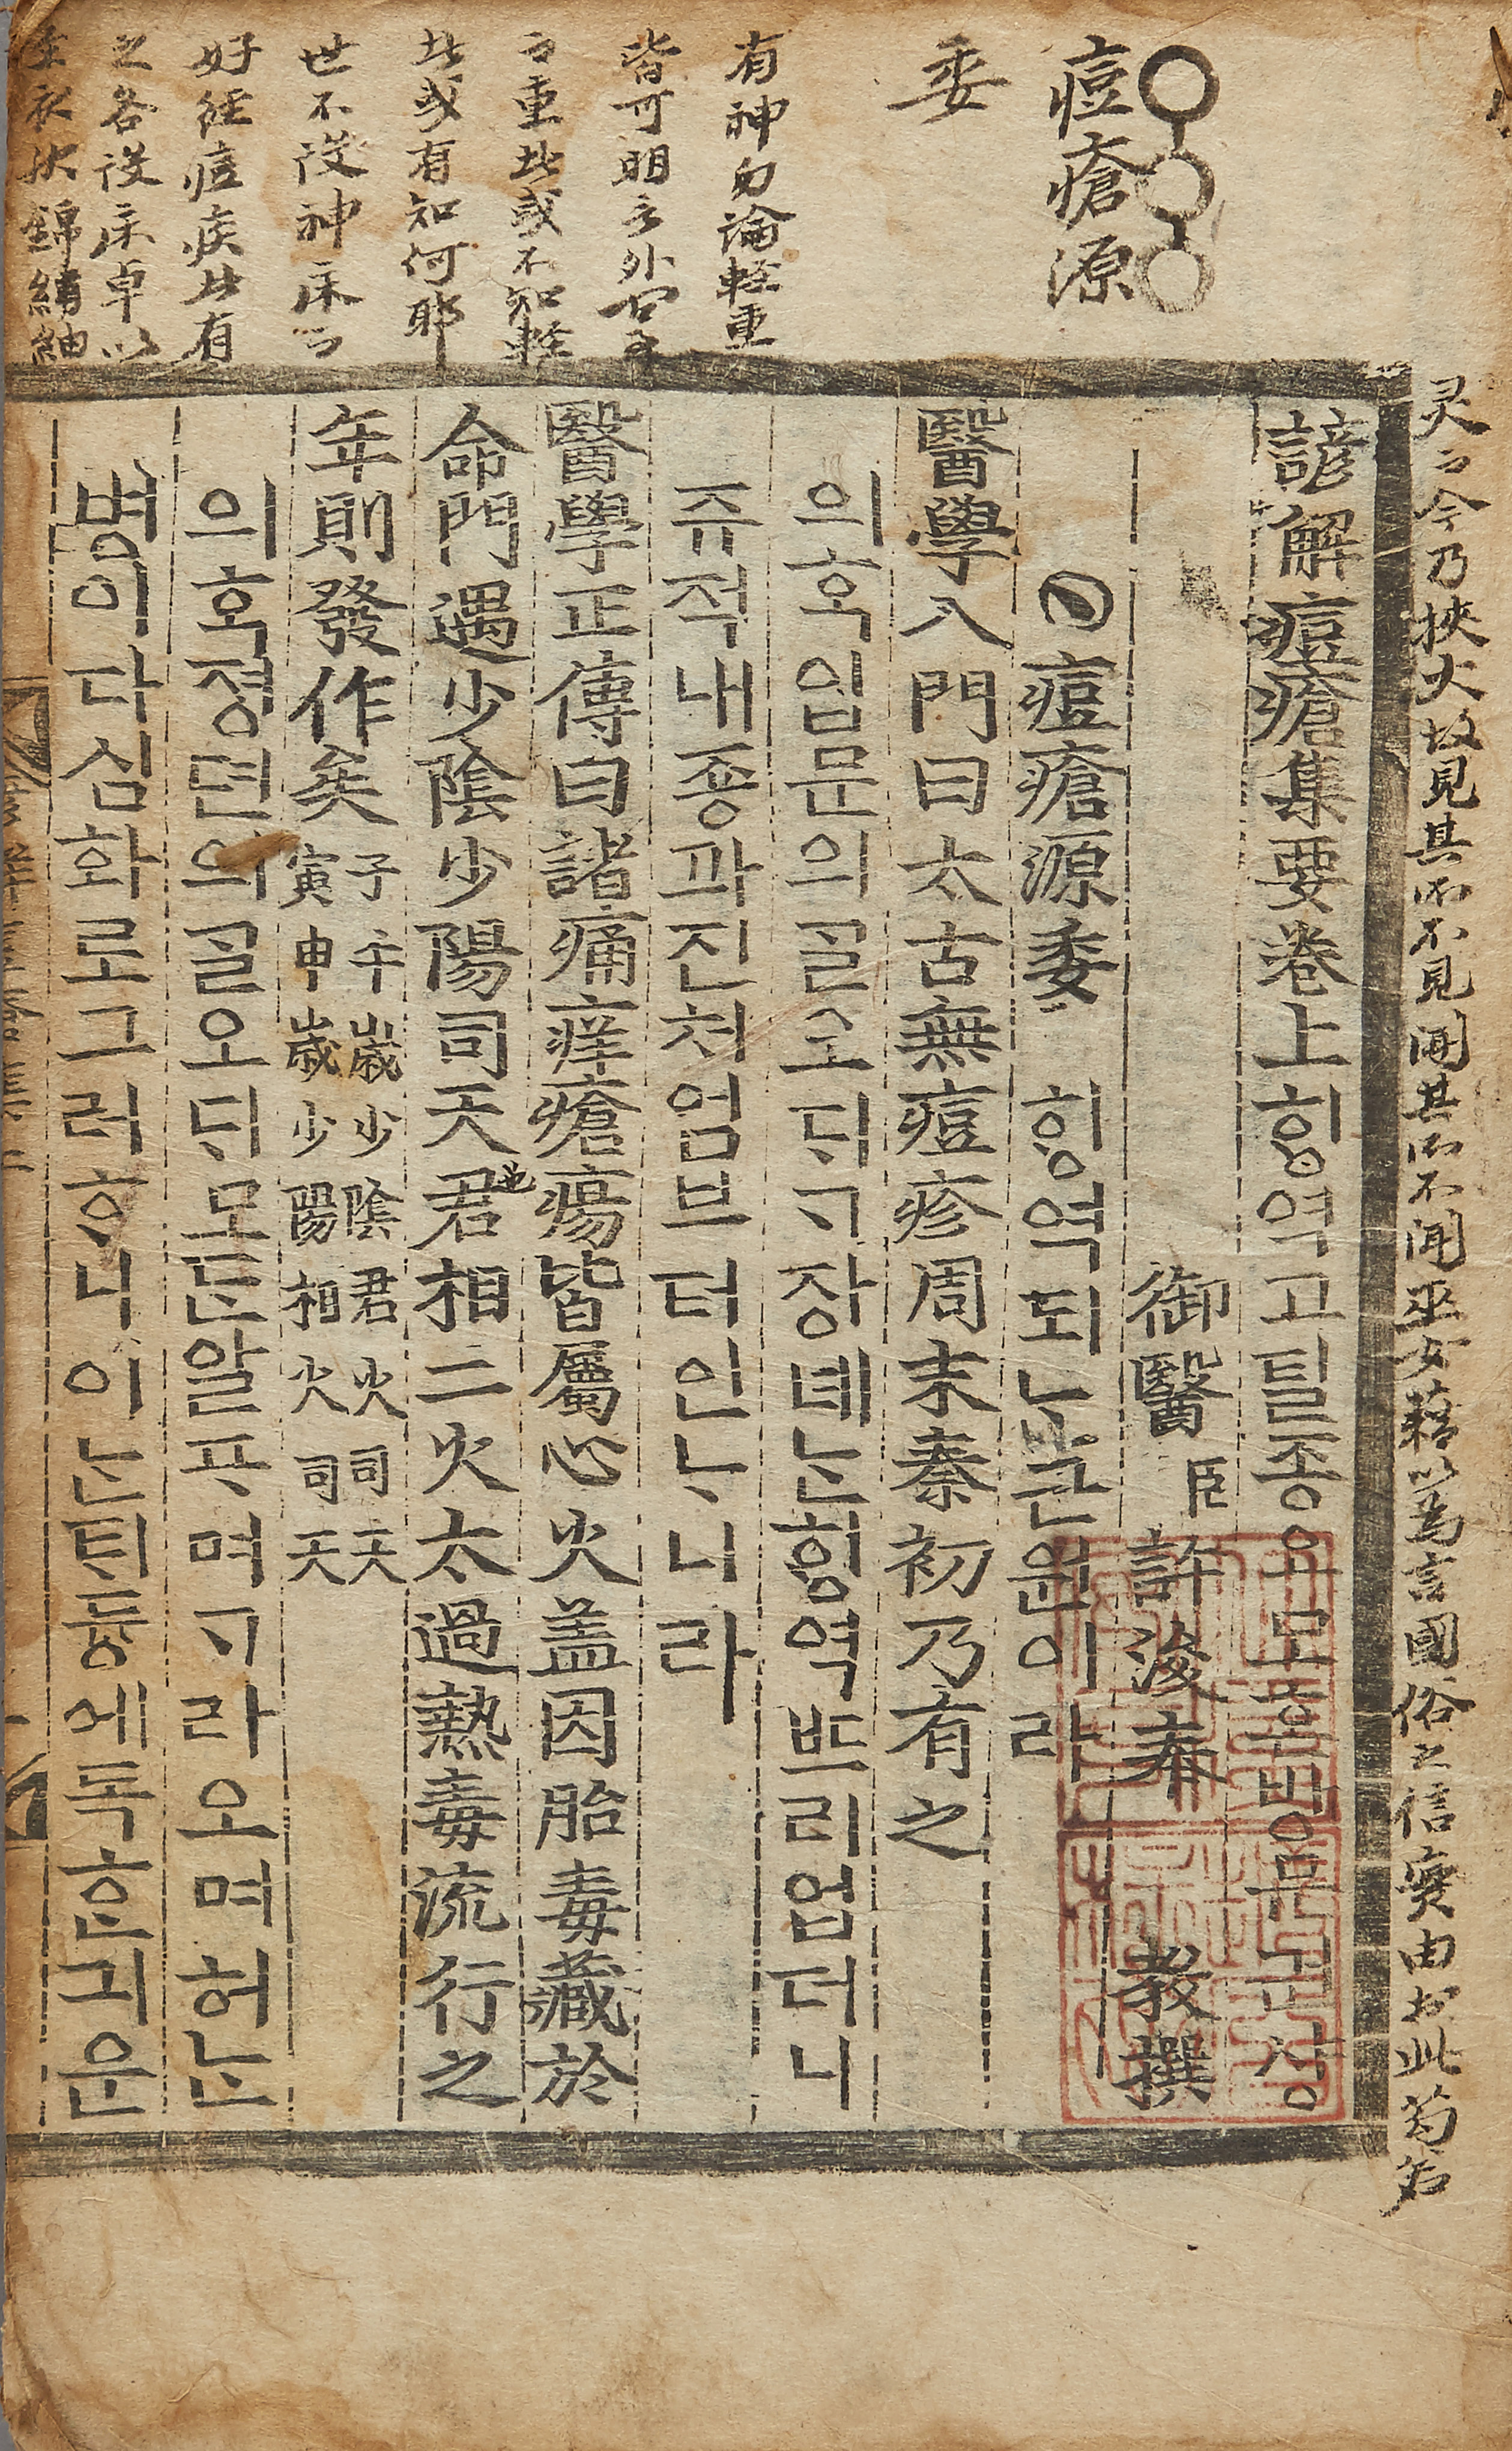 灵 今乃挾 故見其所不見聞其所不聞巫女藉以爲言國俗之信實由於此
痘瘡源
委
有神勿論輕重
皆可明言
重此或不知輕
此或有知何耶
世不設神床
好經痘疾此有
之各設床卓以
錦綃紬
諺解痘瘡集要卷上ᄒᆡᆼ역고틸종요모흔방문권샹
御醫臣許浚奉 敎撰
痘瘡源委 ᄒᆡᆼ역되ᄂᆞᆫ근원이라
醫學入門曰太古無痘疹周末秦初乃有之
의ᄒᆞᆨ입문의ᄀᆞᆯ오ᄃᆡᄀᆞ장녜ᄂᆞᆫᄒᆡᆼ역ᄠᅳ리업더니
쥬젹내죵과진처엄브터인ᄂᆞ니라
醫學正傳曰諸痛痒瘡瘍皆屬心火盖因胎毒藏於
命門遇少陰少陽司天君相二火太過熱毒流行之
也
年則發作矣子午歲少陰君火司天寅申歲少陽相火司天
의ᄒᆞᆨ졍뎐의ᄀᆞᆯ오ᄃᆡ모ᄃᆞᆫ알ᄑᆞ며ᄀᆞ라오며허ᄂᆞᆫ
병이다심화로그러ᄒᆞ니이ᄂᆞᆫᄐᆡ듕에독ᄒᆞᆫ긔운